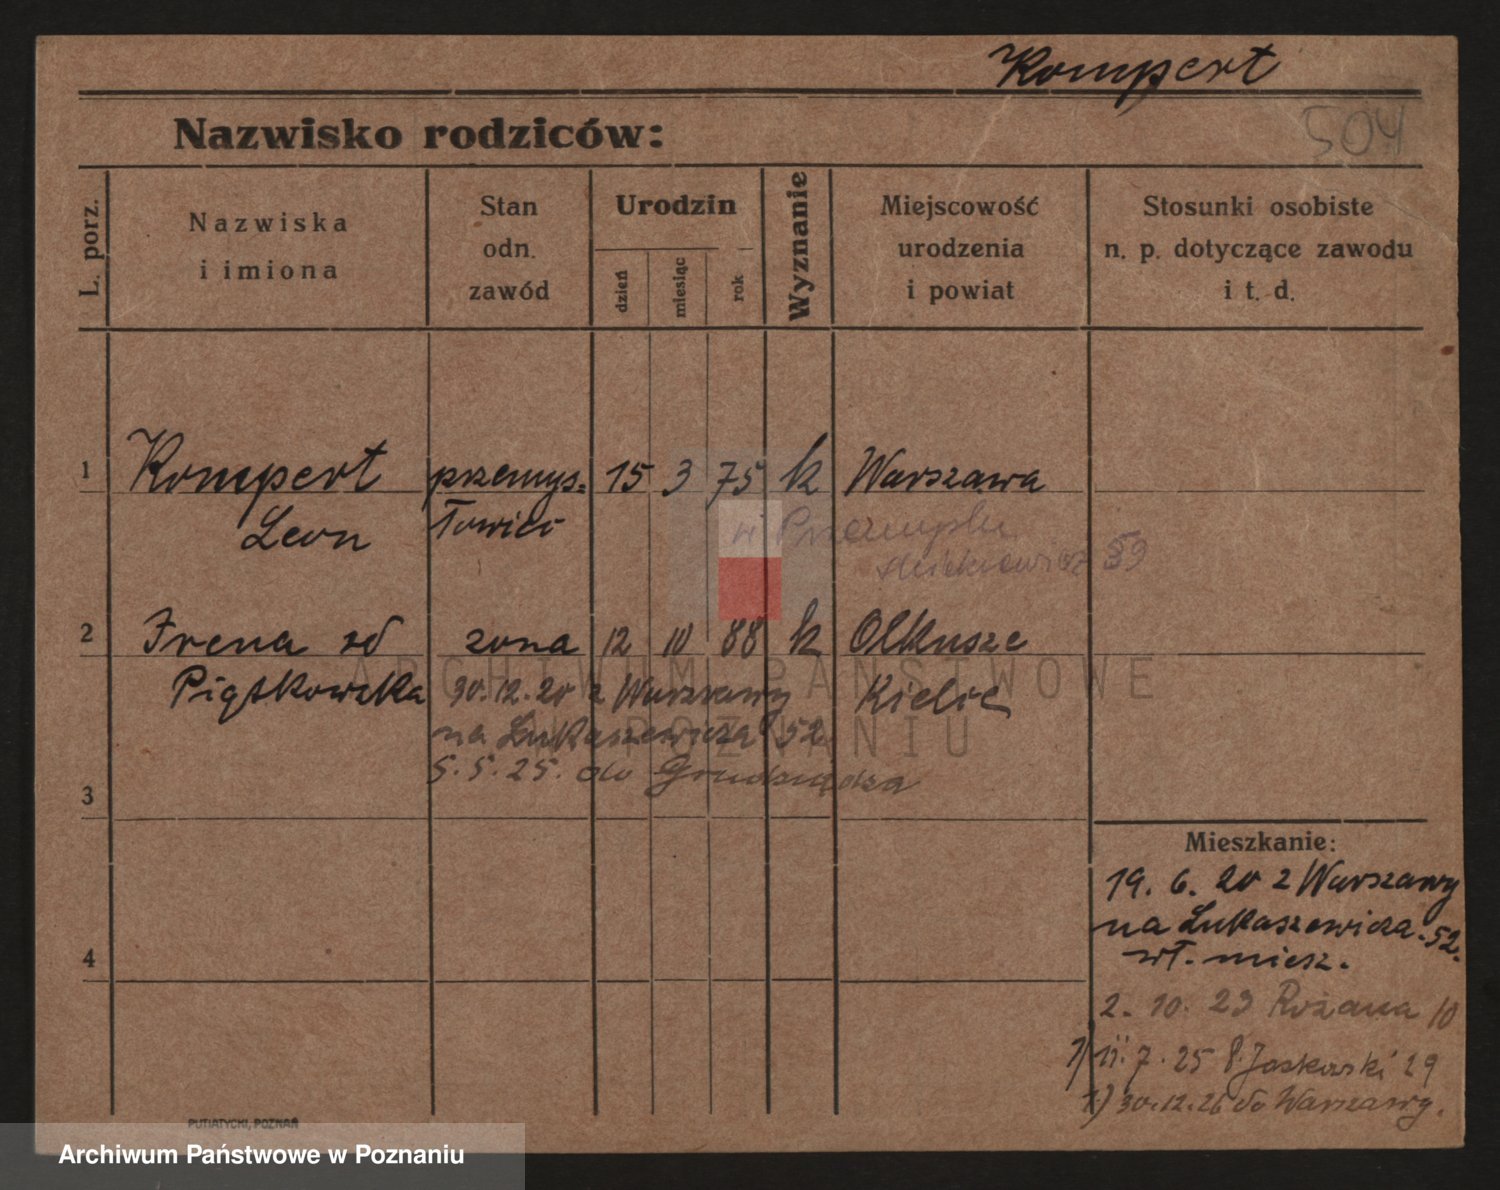 Kompert
504
Nazwisko rodziców:
L. porz.
Nazwiska
i imiona
Stan
odn.
zawód
Urodzin
dzień
miesiąc
rok
Wyznanie
Miejscowość
urodzenia
i powiat
Stosunki osobiste
n. p. dotyczące zawodu
i t. d.
1 Kompert przemys= 15 3 75 k Warszawa
Leon łowiec
w Przemyslu
59
2 Irena zd zona 12 10 88 k Olkusze
Piątkowska 30.12.20 z Warszawy Kielce
na Łukaszewicza 52
5.5.25. do Grudziądza
3
4
Mieszkanie:
19. 6. 20 z Warszawy
na Łukaszewicza 52.
wł. miesz.
2. 10. 23 Rożana 10
1) 11. 7. 25 P. Jaskowski 29
1.) 30.12.26 do Warszawy.
PUTIATYCKI, POZNAŃ
ARCHIWUM PAŃSTWOWE
W POZNANIU
Archiwum Państwowe w Poznaniu